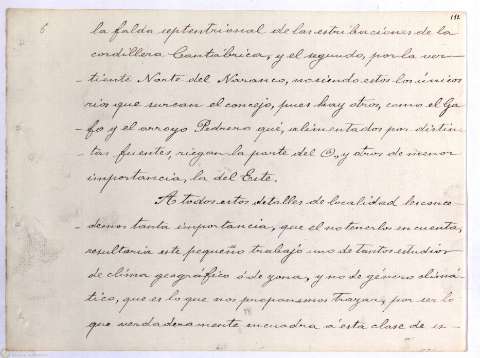 6
112
la falda septentrional de las estribaciones de la
cordillera Cantábrica, y el segundo, por la ver-
tiente Norte del Naranco, no siendo estos los únicos
rios que surcan el concejo, pues hay otros, como el Ga-
fo y el arroyo Pedrero qué, alimentados por distin-
tas fuentes, riegan la parte del O. y otros de menor
importancia, la del Este.
A todos estos detalles de localidad les conce-
demos tanta importancia, que el no tenerlos en cuenta,
resultaria este pequeño trabajo uno de tantos estudios
de clima geográfico ó de zona, y no de género climá-
tico, que es lo que nos proponemos trazar, por ser lo
que verdaderamente encuadra á esta clase de es-